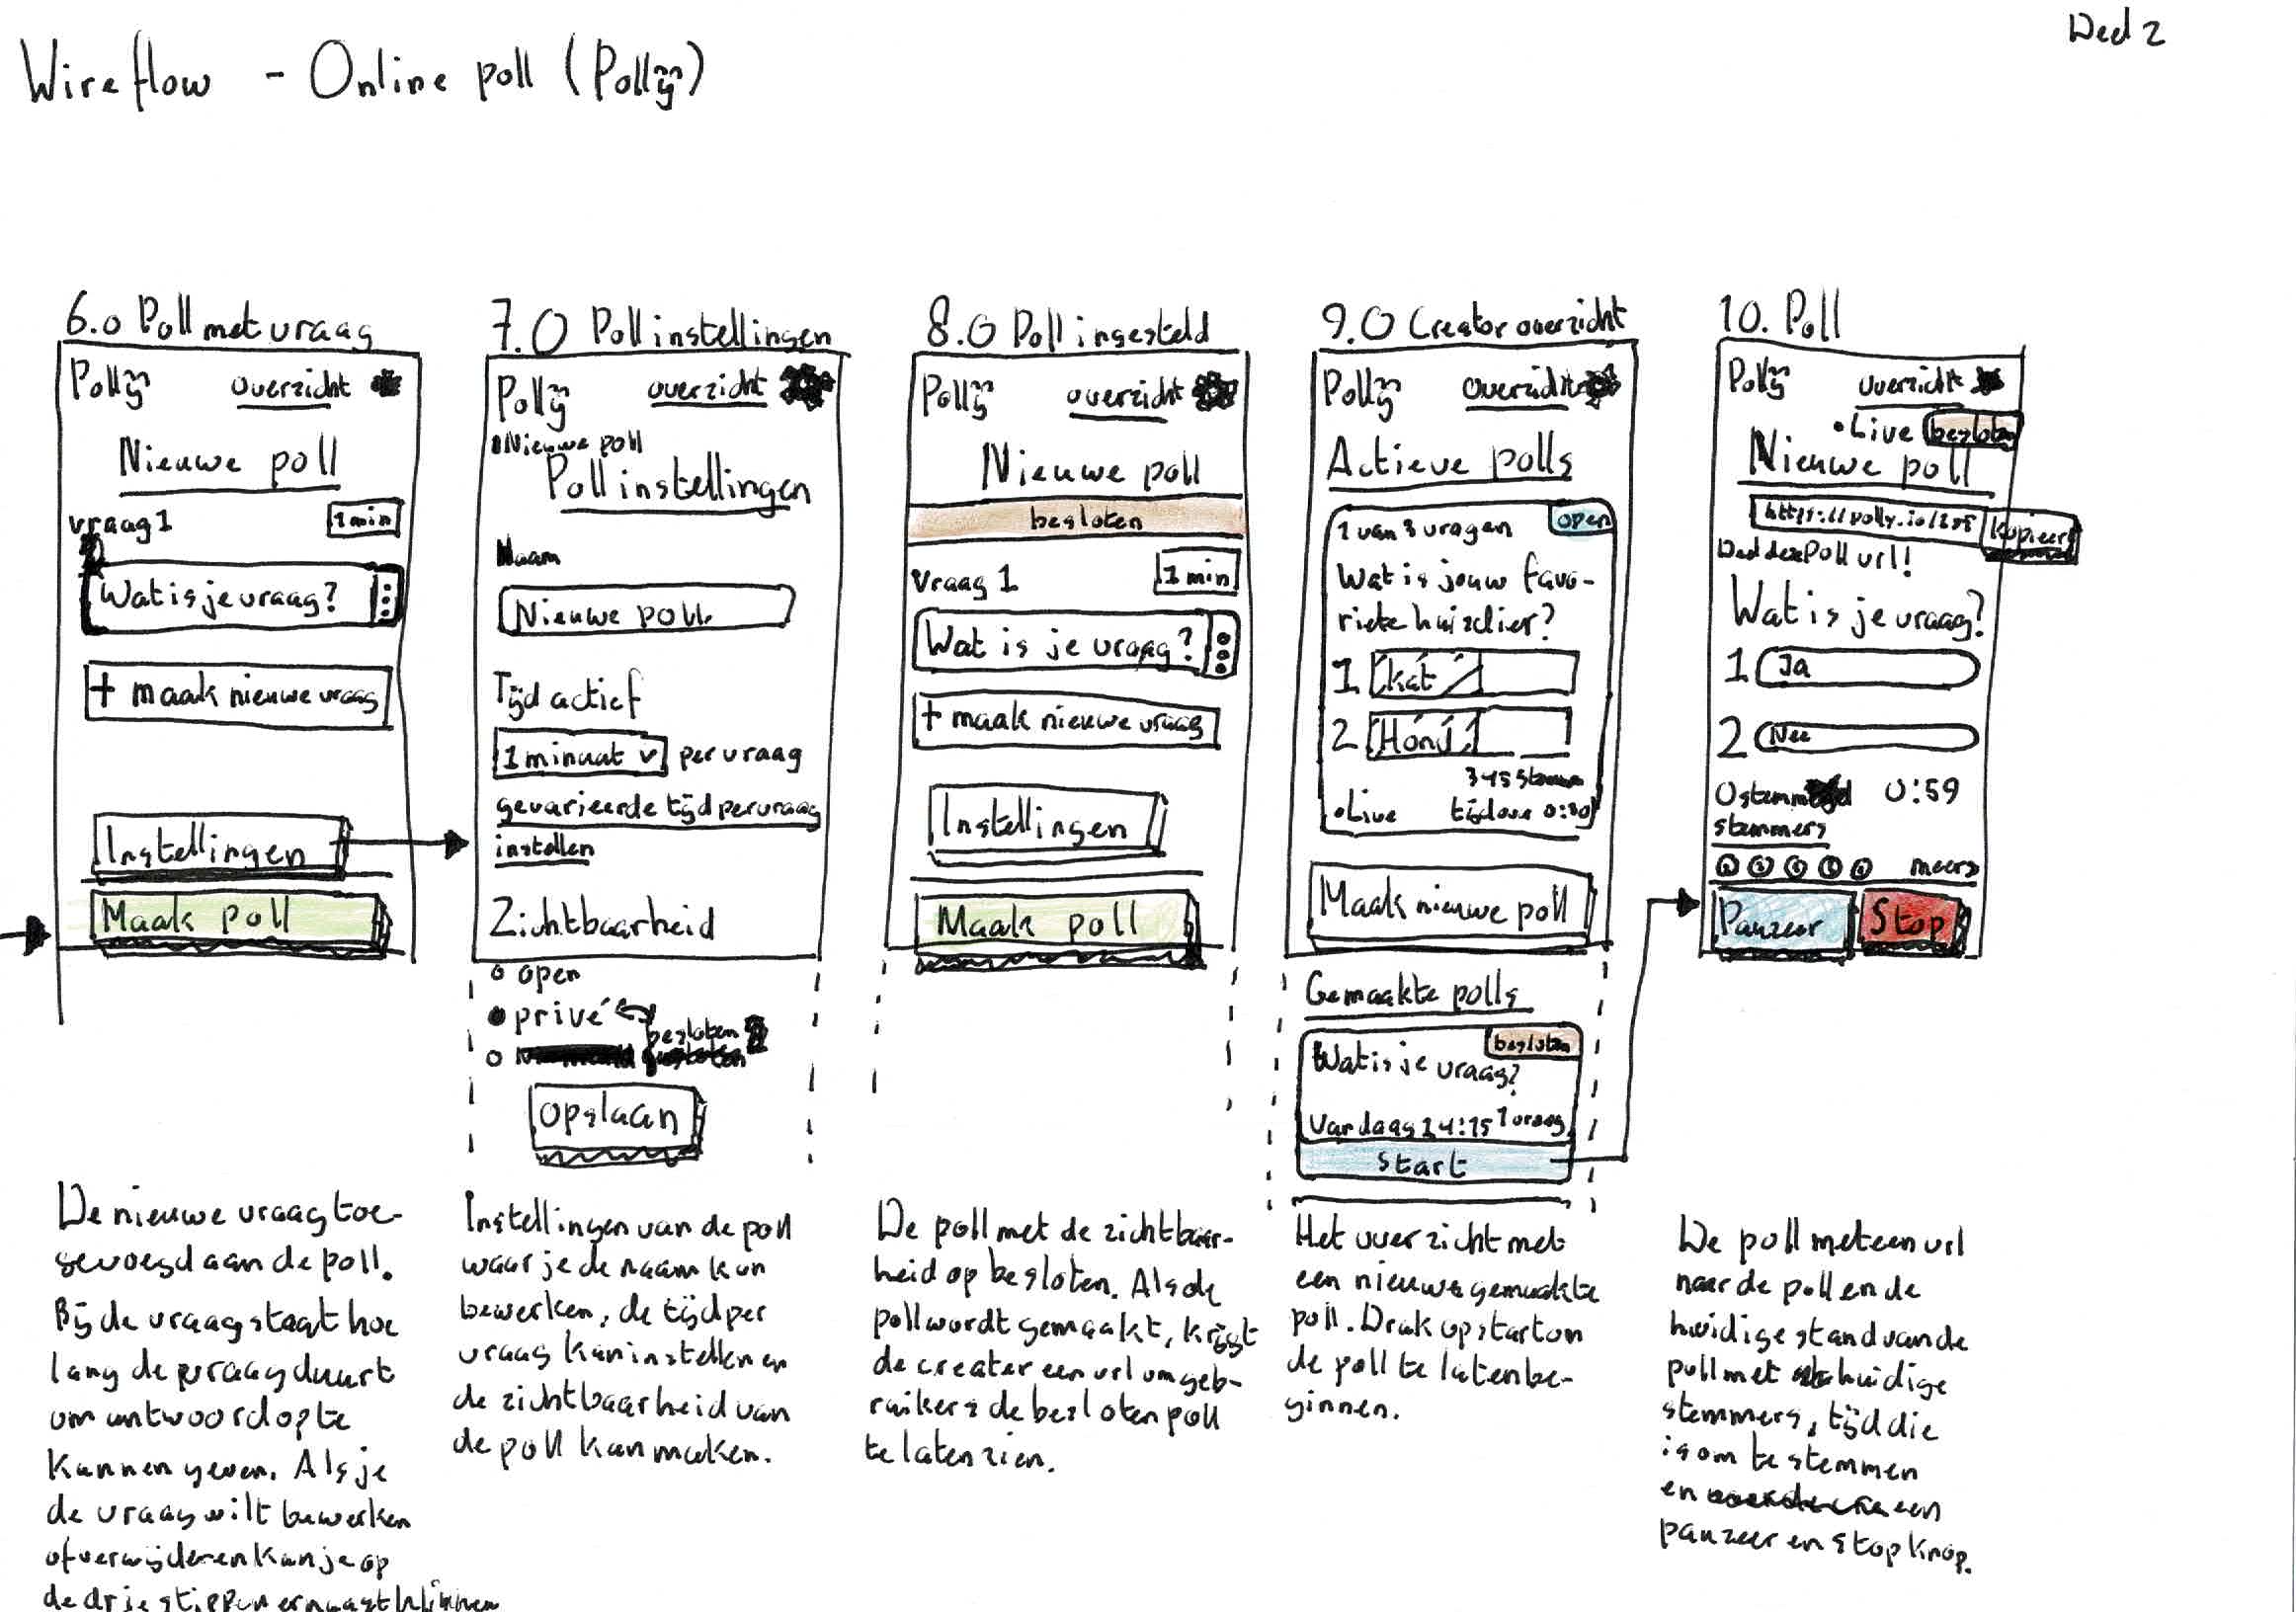 Deel 2
Wireflow - Online poll (Polly)
6.0 Poll met vraag
Polly overzicht
Nieuwe poll
vraag 1 1 min
Wat is je vraag?
+ maak nieuwe vraag
Instellingen
Maak poll
De nieuwe vraag toe-
gevoegd aan de poll.
Bij de vraag staat hoe
lang de vraag duurt
om antwoord op te
kunnen geven. Als je
de vraag wilt bewerken
of verwijderen kan je op
de drie stippen ernaast klikken
7.0 Poll instellingen
Polly overzicht
Nieuwe poll
Poll instellingen
Naam
Nieuwe poll
Tijd actief
1 minuut v per vraag
gevarieerde tijd per vraag
instellen
Zichtbaarheid
open
privé
besloten
opslaan
Instellingen van de poll
waar je de naam kan
bewerken, de tijd per
vraag kan instellen en
de zichtbaarheid van
de poll kan maken.
8.0 Poll ingesteld
Polly overzicht
Nieuwe poll
besloten
Vraag 1 1 min
Wat is je vraag?
+ maak nieuwe vraag
Instellingen
Maak poll
De poll met de zichtbaar-
heid op besloten. Als de
poll wordt gemaakt, krijgt
de creater een url om geb-
ruikers de besloten poll
te laten zien.
9.0 Creator overzicht
Polly overzicht
Actieve polls
1 van 3 vragen open
Wat is jouw favo-
riete huisdier?
1 kat
2 Hond
345 stemmen
• Live tijd over 0:30
Maak nieuwe poll
Gemaakte polls
besloten
Wat is je vraag?
Vandaag 14:15 1 vraag
Start
Het overzicht met
een nieuwe gemaakte
poll. Druk op start om
de poll te laten be-
ginnen.
10. Poll
Polly overzicht
• Live besloten
Nieuwe poll
kopieer
Deel deze Poll url!
Wat is je vraag?
1 Ja
2 Nee
0 stemmen 0:59
stemmers
meer >
Pauzeer Stop
De poll met een url
naar de poll en de
huidige stand van de
poll met huidige
stemmers, tijd die
is om te stemmen
en een
pauzeer en stop knop.